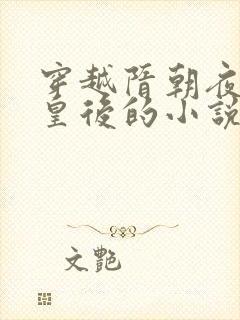 穿越隋朝夜
皇後的小說
文艷